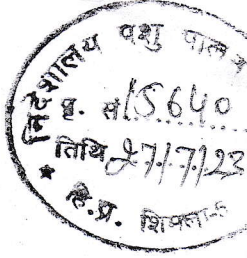 निदेशालय पशु पालन
पृ. सं 15640
तिथि 27/7/23
हि.प्र. शिमला-5